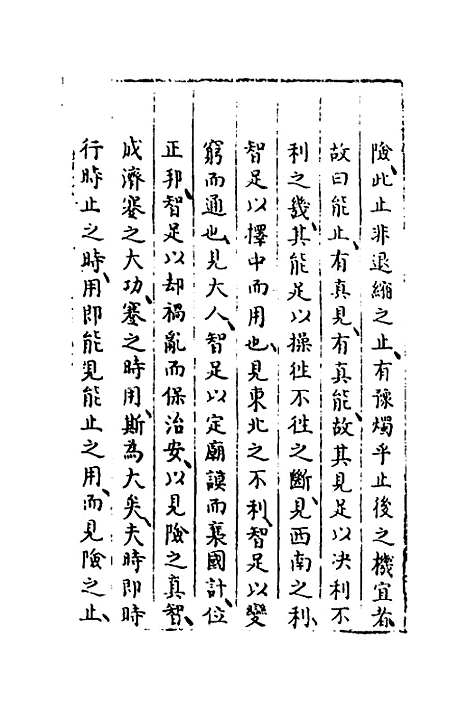 險、此止非退縮之止、有豫燭乎止後之機宜者、
故曰能止、有真見、有真能、故其見足以决利不
利之幾、其能足以操徃不徃之斷、見西南之利、
智足以擇中而用也、見東北之不利、智足以變
窮而通也、見大人、智足以定廟謨而襄國計、位
正邦、智足以却禍亂而保治安、以見險之真智、
成濟蹇之大功、蹇之時用、斯為大矣、夫時即時
行時止之時、用即能見能止之用、而見險之止、